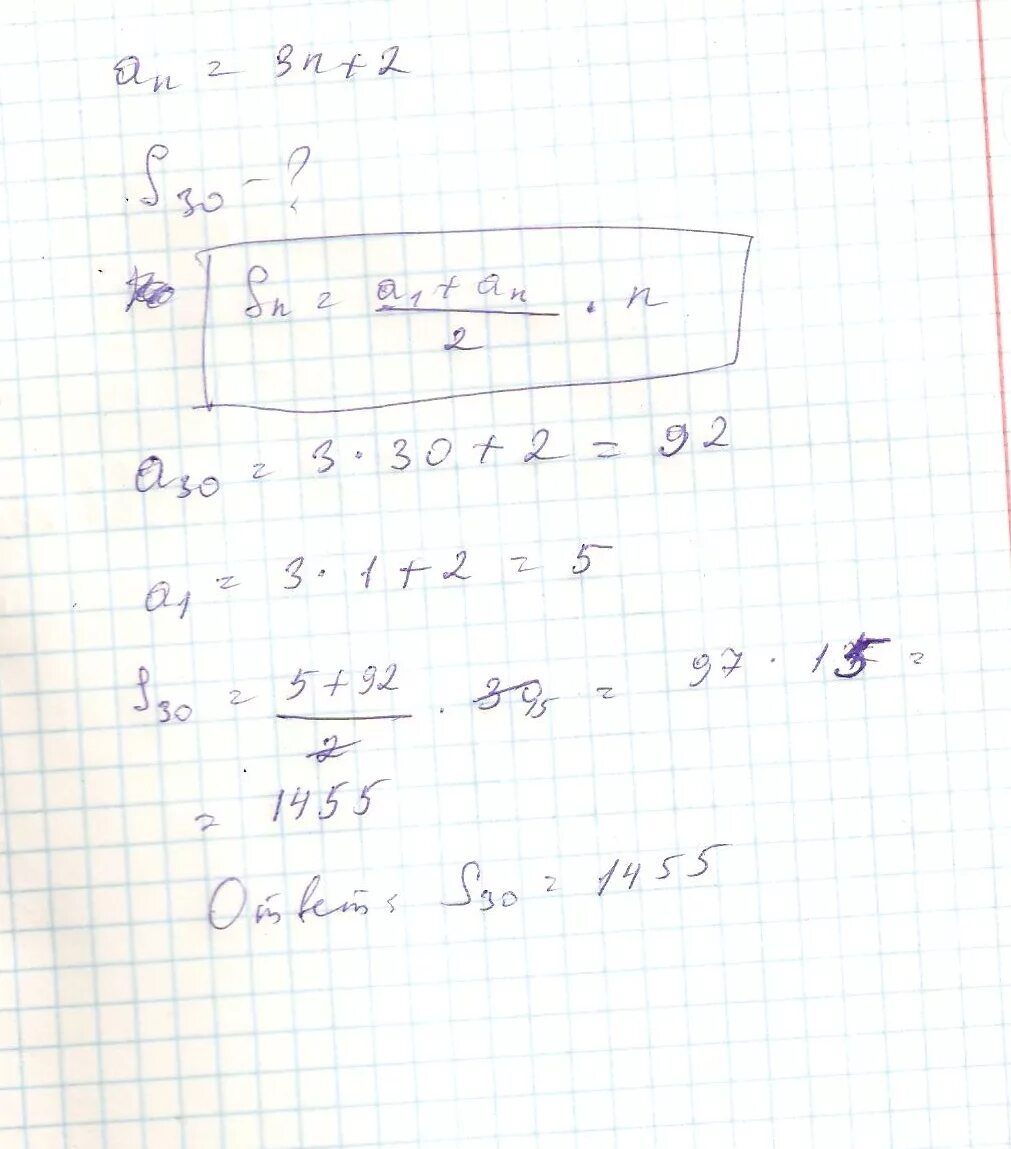 aₙ = 3n+2
S₃₀ - ?
Sₙ = (a₁ + aₙ)/2 · n
a₃₀ = 3 · 30 + 2 = 92
a₁ = 3 · 1 + 2 = 5
S₃₀ = (5+92)/2 · 30 15 = 97 · 15 =
= 1455
Ответ: S₃₀ = 1455